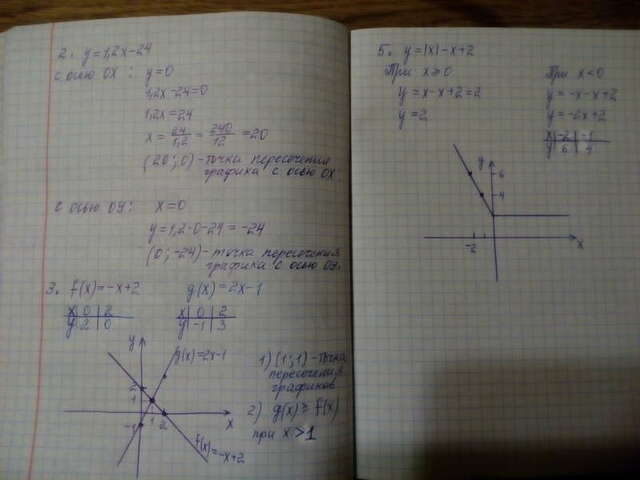 2. y=1,2x-24
с осью OX: y=0
1,2x-24=0
1,2x=24
x=24/1,2=240/12=20
(20;0)-точка пересечения
графика с осью OX.
с осью OY: x=0
y=1,2·0-24=-24
(0;-24)-точка пересечения
графика с осью OY.
3. f(x)=-x+2 g(x)=2x-1
x 0 2
y 2 0
x 0 2
y -1 3
y
g(x)=2x-1
2
1
1 2
x
-1
f(x)=-x+2
1) (1;1)-точка
пересечения
графиков
2) g(x)≥f(x)
при x>1
5. y=|x|-x+2
При x≥0
y=x-x+2=2
y=2
При x<0
y=-x-x+2
y=-2x+2
x -2 -1
y 6 4
y
6
4
-2
x